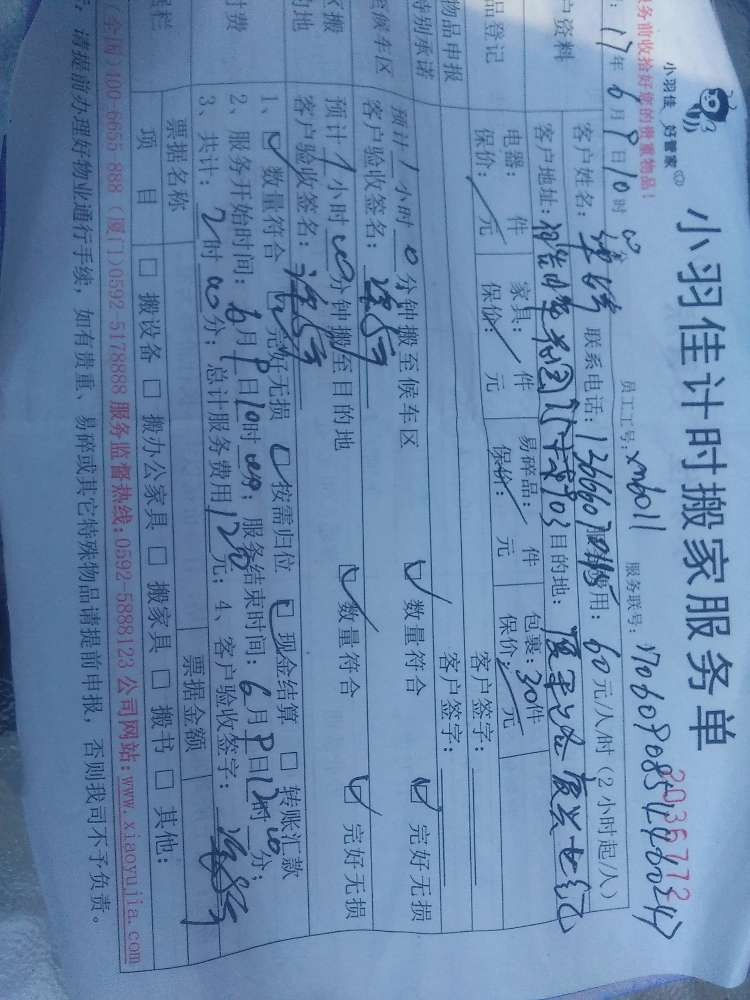 小羽佳 好管家
小羽佳计时搬家服务单
2035772
务前收拾好您的贵重物品!
员工工号: xm6011 服务联号:
17年6月9日10时
户资料 客户姓名: 联系电话: 费用: 60元/人/时(2小时起/人)
客户地址: 903 目的地:
品登记 电器: 件 家具: 件 易碎品: 件 包裹: 30件
保价: 元 保价: 元 保价: 元 保价: 元
物品申报 客户签字:
特别承诺 客户签字:
候车区 预计1小时0分钟搬至候车区 数量符合 完好无损
客户验收签名:
区搬 预计1小时00分钟搬至目的地 数量符合 完好无损
的地 客户验收签名:
1、 数量符合 完好无损 按需归位 现金结算 转账汇款
付费 2、服务开始时间: 6月9日10时00分; 服务结束时间: 6月9日12时00分;
3、共计: 2时00分; 总计服务费用120元; 4、客户验收签字:
票据名称 票据金额
栏 项目 搬设备 搬办公家具 搬家具 搬书 其他:
(全国)400-6655 888 (厦门)0592 5178888 服务监督热线:0592-5888123 公司网站:www.xiaoyujia.com
请提前办理好物业通行手续,如有贵重、易碎或其它特殊物品请提前申报,否则我司不予负责。